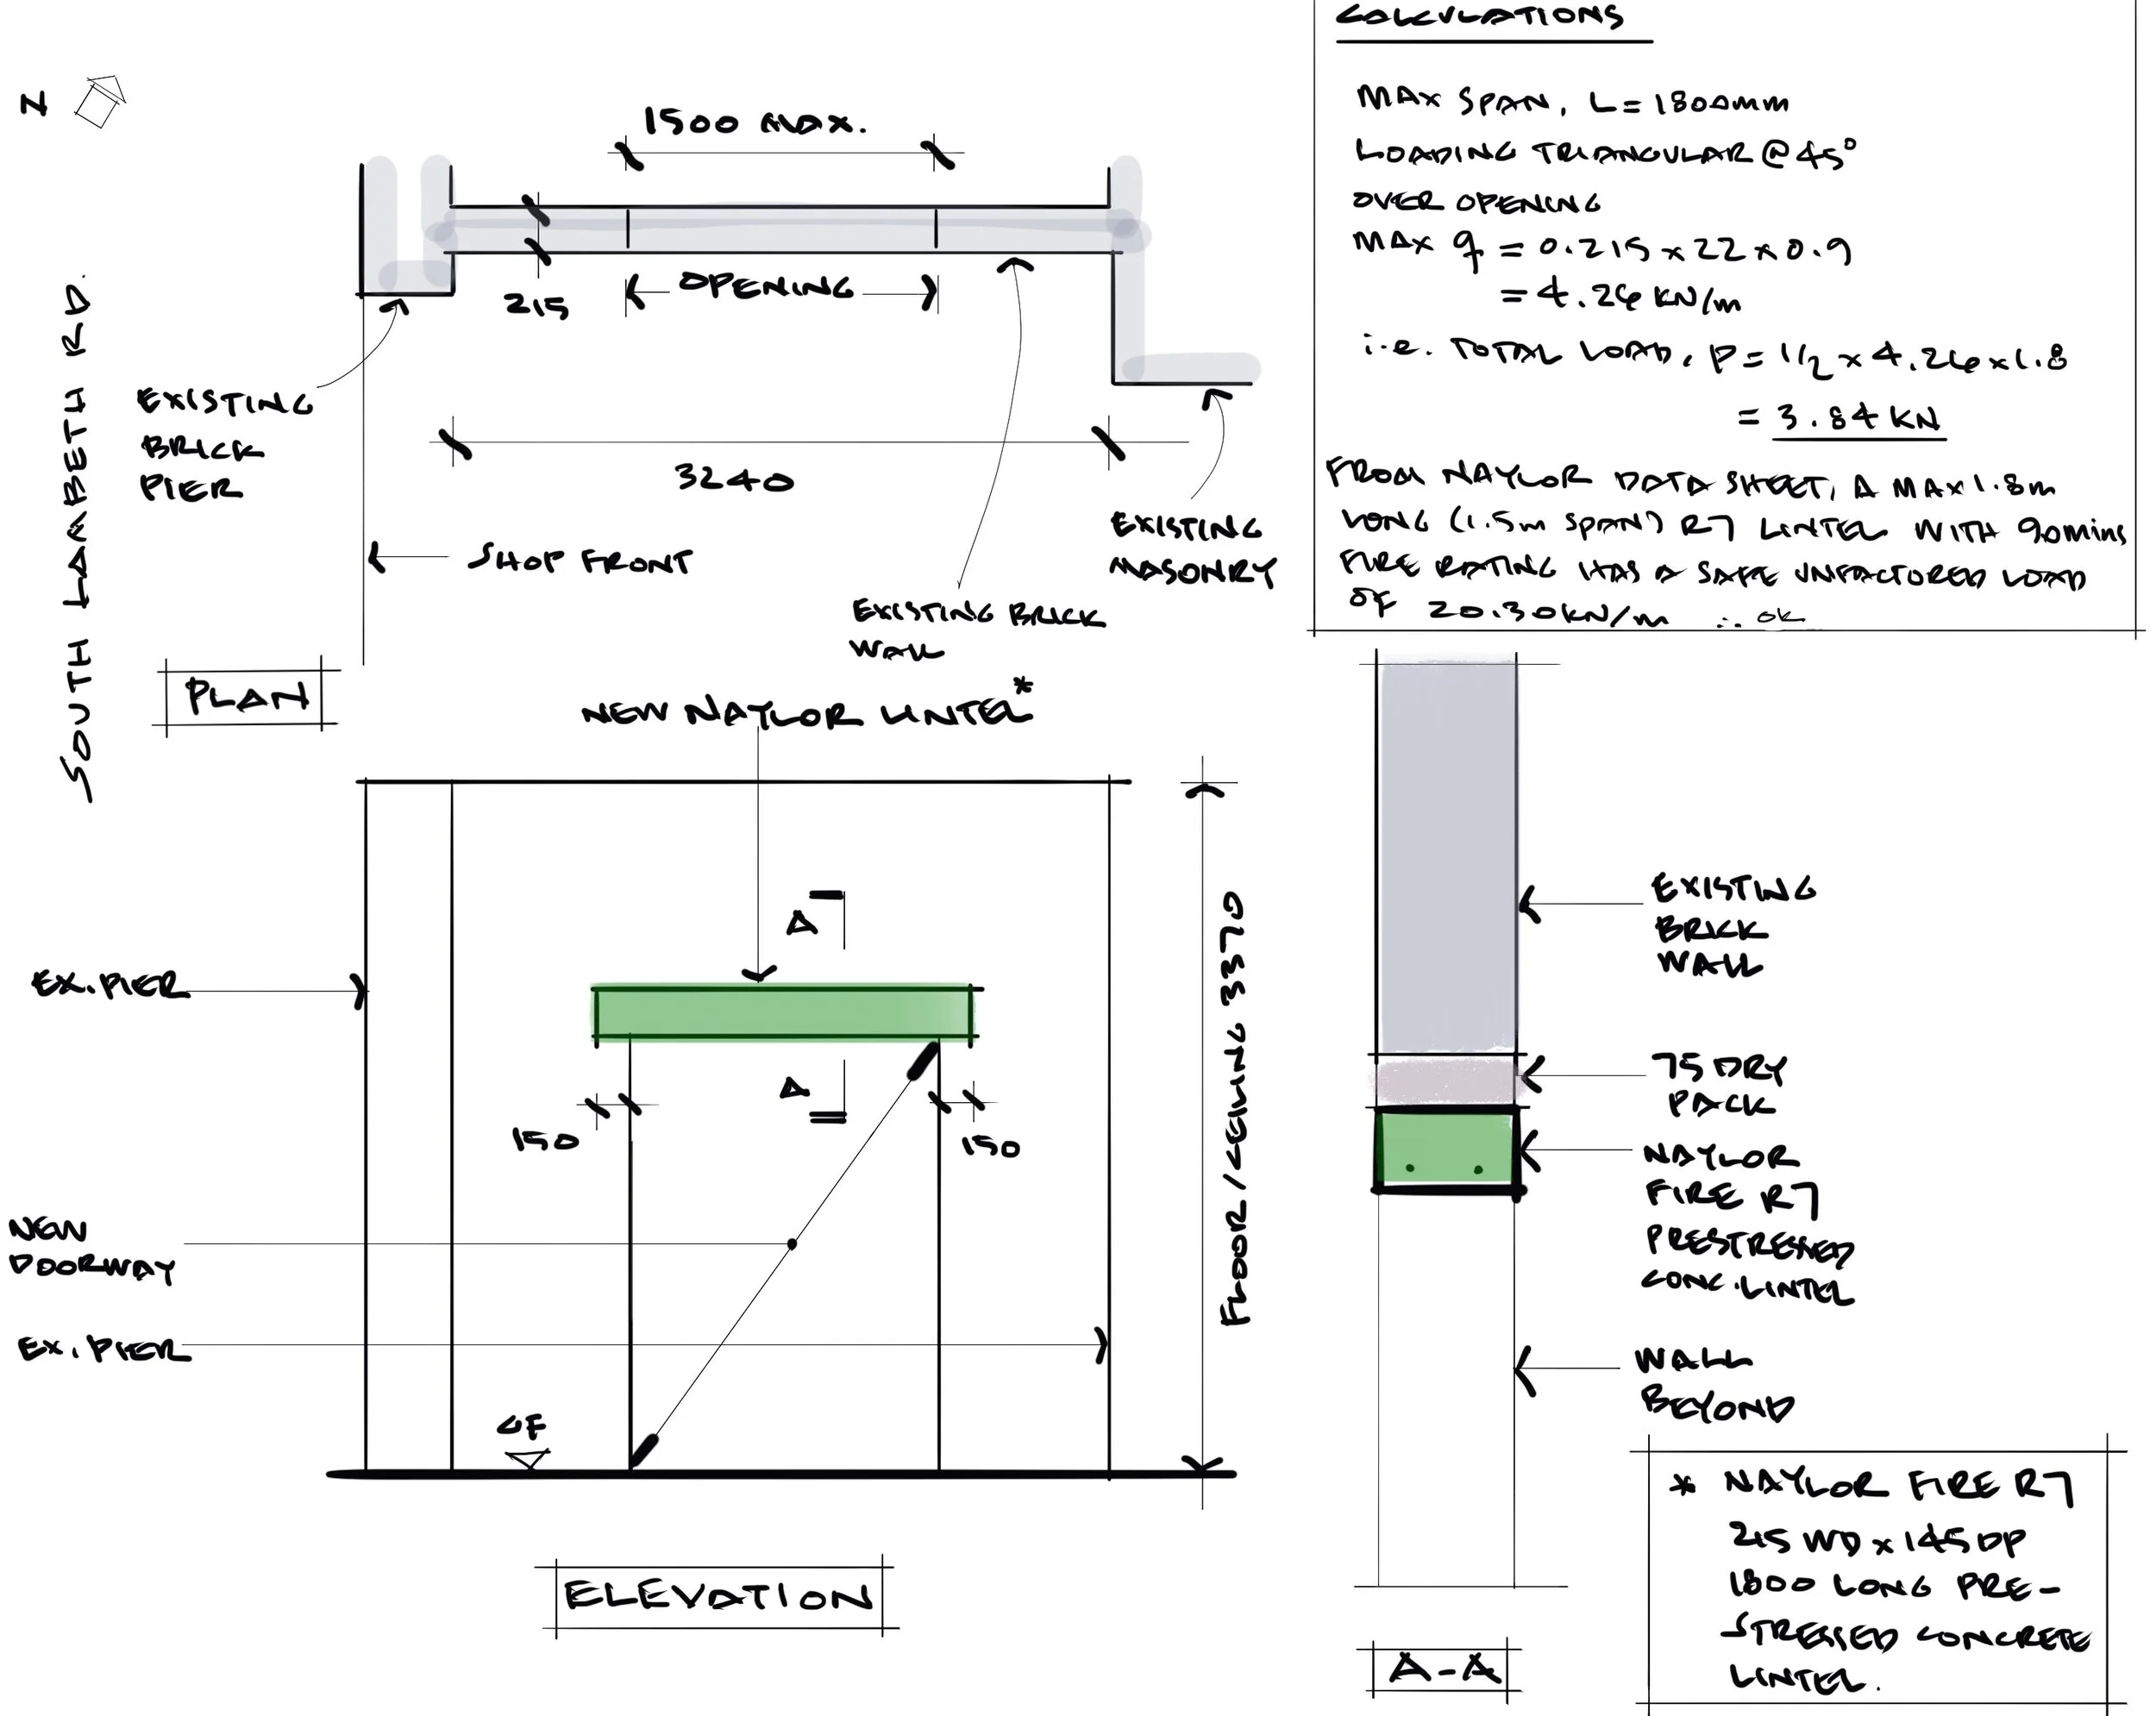 CALCULATIONS
MAX SPAN, L = 1800mm
LOADING TRIANGULAR @ 45°
OVER OPENING
MAX q = 0.215 x 22 x 0.9
= 4.26 KN/m
i.e. TOTAL LOAD, P = 1/2 x 4.26 x 1.8
= 3.84 KN
FROM NAYLOR DATA SHEET, A MAX 1.8m
LONG (1.5m SPAN) R7 LINTEL WITH 90mins
FIRE RATING HAS A SAFE UNFACTORED LOAD
OF 20.30KN/m ∴ OK
N
1500 MAX.
215
OPENING
SOUTH LAMBETH RD.
EXISTING
BRICK
PIER
3240
SHOP FRONT
EXISTING
MASONRY
EXISTING BRICK
WALL
PLAN
NEW NAYLOR LINTEL*
A
A
EX. PIER
150
150
NEW
DOORWAY
EX. PIER
GF
FLOOR/CEILING 3370
ELEVATION
EXISTING
BRICK
WALL
75 DRY
PACK
NAYLOR
FIRE R7
PRESTRESSED
CONC. LINTEL
WALL
BEYOND
A-A
* NAYLOR FIRE R7
215 WD x 145 DP
1800 LONG PRE-
STRESSED CONCRETE
LINTEL.